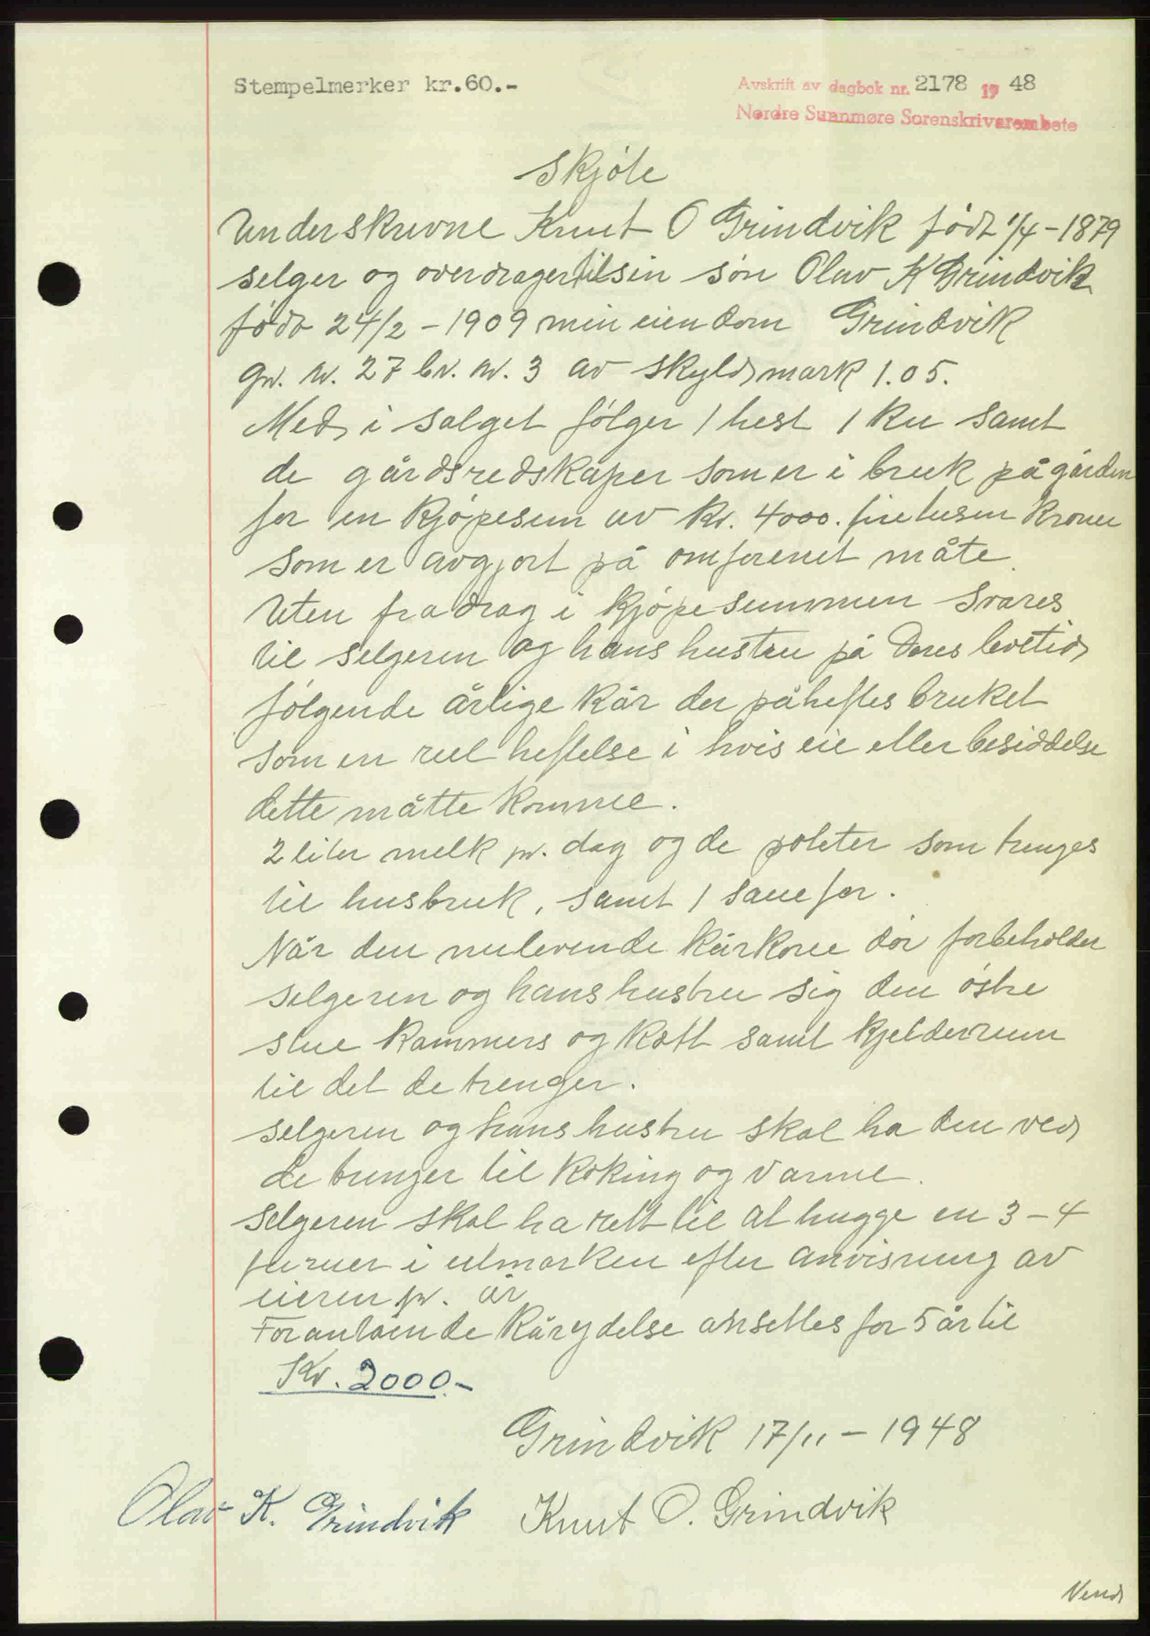 Stempelmerker kr.60.-
Avskrift av dagbok nr. 2178 19 48
Nordre Sunnmøre Sorenskriverembete
Skjøte
Underskrevne Knut O Grindvik født 1/4-1879
selger og overdrager til sin søn Olav K Grindvik
født 24/2-1909 min eiendom Grindvik
gr. nr. 27 br. nr. 3 av skyld mark 1.05.
Med i salget følger 1 hest 1 ku samt
de gårdsredskaper som er i bruk på gården
for en kjøpesum av kr. 4000. fire tusen kroner
som er avgjort på omforenet måte.
Uten fradrag i kjøpesummen svares
til selgeren og hans hustru på deres levetid
følgende årlige kår der påheftes bruket
som en reel heftelse i hvis eie eller besiddelse
dette måtte komme.
2 liter melk pr. dag og de poteter som trenges
til husbruk, samt 1 sauefor.
Når den nulevende kårkone dør forbeholder
selgeren og hans hustru sig den østre
stue kammers og kott samt kjelderrum
til det de trenger.
Selgeren og hans hustru skal ha den ved
de trenger til koking og varme.
Selgeren skal ha rett til at hugge en 3-4
furuer i utmarken efter anvisning av
eieren pr. år
Foranstående kårydelse ansettes for 5 år til
Kr. 2000.-
Grindvik 17/11-1948
Olav K. Grindvik Knut O. Grindvik
Vend